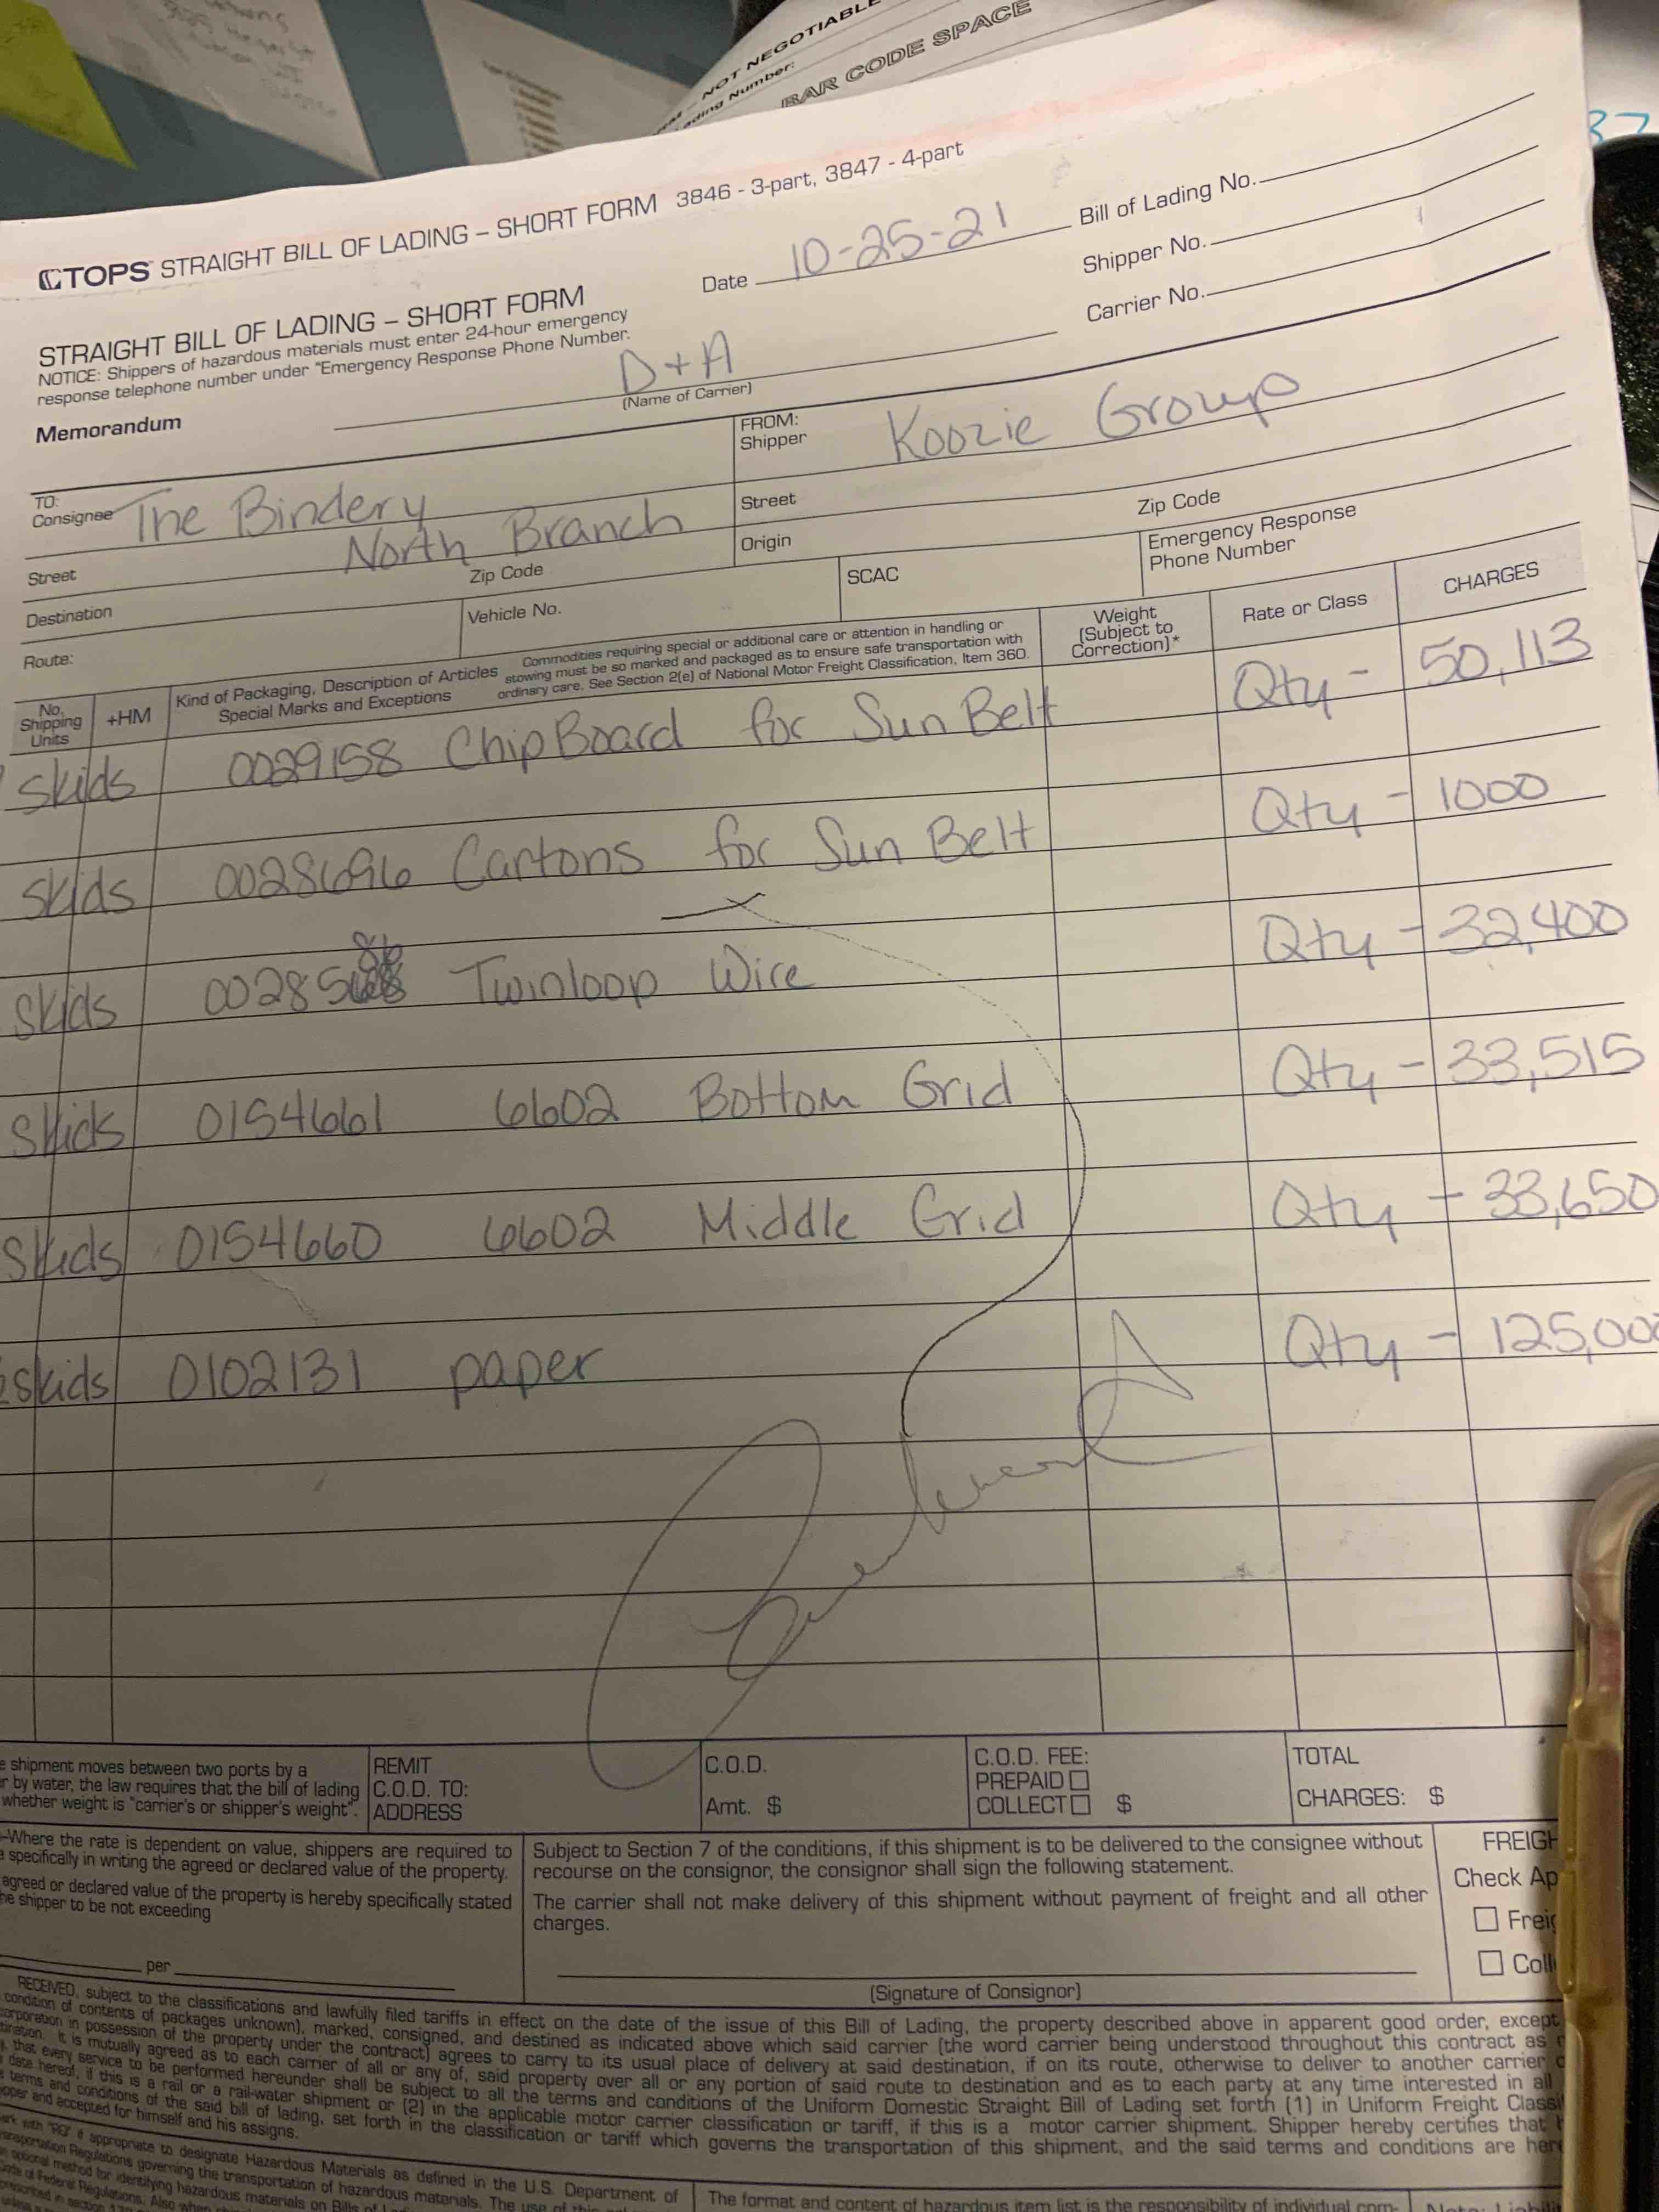 NOT NEGOTIABLE
Number:
BAR CODE SPACE
37
TOPS STRAIGHT BILL OF LADING – SHORT FORM 3846 - 3-part, 3847 - 4-part
Date 10-25-21
Bill of Lading No.
Shipper No.
Carrier No.
STRAIGHT BILL OF LADING – SHORT FORM
NOTICE: Shippers of hazardous materials must enter 24-hour emergency
response telephone number under "Emergency Response Phone Number.
Memorandum
D+A
(Name of Carrier)
TO:
Consignee The Bindery
North Branch
FROM:
Shipper Koozie Group
Street
Zip Code
Street
Zip Code
Destination
Origin
Emergency Response
Phone Number
Route:
Vehicle No.
SCAC
No.
Shipping
Units
+HM
Kind of Packaging, Description of Articles
Special Marks and Exceptions
Commodities requiring special or additional care or attention in handling or
stowing must be so marked and packaged as to ensure safe transportation with
ordinary care. See Section 2(e) of National Motor Freight Classification, Item 360.
Weight
(Subject to
Correction)*
Rate or Class
CHARGES
skids 0029158 ChipBoard for Sun Belt Qty - 50,113
skids 0028696 Cartons for Sun Belt Qty - 1000
skids Twinloop Wire Qty - 32,400
skids 0154661 6602 Bottom Grid Qty - 33,515
skids 0154660 6602 Middle Grid Qty - 33,650
skids 0102131 paper Qty - 125,00
e shipment moves between two ports by a
r by water, the law requires that the bill of lading
whether weight is "carrier's or shipper's weight".
REMIT
C.O.D. TO:
ADDRESS
C.O.D.
Amt. $
C.O.D. FEE:
PREPAID
COLLECT $
TOTAL
CHARGES: $
–Where the rate is dependent on value, shippers are required to
specifically in writing the agreed or declared value of the property.
agreed or declared value of the property is hereby specifically stated
he shipper to be not exceeding
per
Subject to Section 7 of the conditions, if this shipment is to be delivered to the consignee without
recourse on the consignor, the consignor shall sign the following statement.
The carrier shall not make delivery of this shipment without payment of freight and all other
charges.
(Signature of Consignor)
FREIGH
Check Ap
Freig
Coll
RECEIVED, subject to the classifications and lawfully filed tariffs in effect on the date of the issue of this Bill of Lading, the property described above in apparent good order, except
condition of contents of packages unknown), marked, consigned, and destined as indicated above which said carrier (the word carrier being understood throughout this contract as
corporation in possession of the property under the contract) agrees to carry to its usual place of delivery at said destination, if on its route, otherwise to deliver to another carrier
It is mutually agreed as to each carrier of all or any of, said property over all or any portion of said route to destination and as to each party at any time interested in all
that every service to be performed hereunder shall be subject to all the terms and conditions of the Uniform Domestic Straight Bill of Lading set forth (1) in Uniform Freight Classi
date hereof, if this is a rail or a rail-water shipment or (2) in the applicable motor carrier classification or tariff, if this is a motor carrier shipment. Shipper hereby certifies that
terms and conditions of the said bill of lading, set forth in the classification or tariff which governs the transportation of this shipment, and the said terms and conditions are her
and accepted for himself and his assigns.
with "RQ" if appropriate to designate Hazardous Materials as defined in the U.S. Department of
Regulations governing the transportation of hazardous materials. The use of this
optional method for identifying hazardous materials on Bills of
Code of Federal Regulations. Also when
The format and content of hazardous item list is the responsibility of individual com-